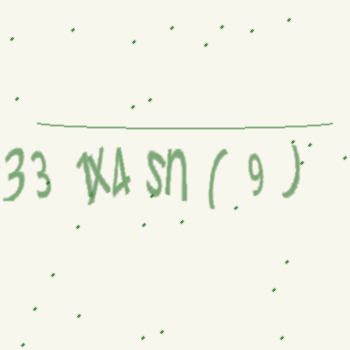 33 1X4 sn ( 9 )